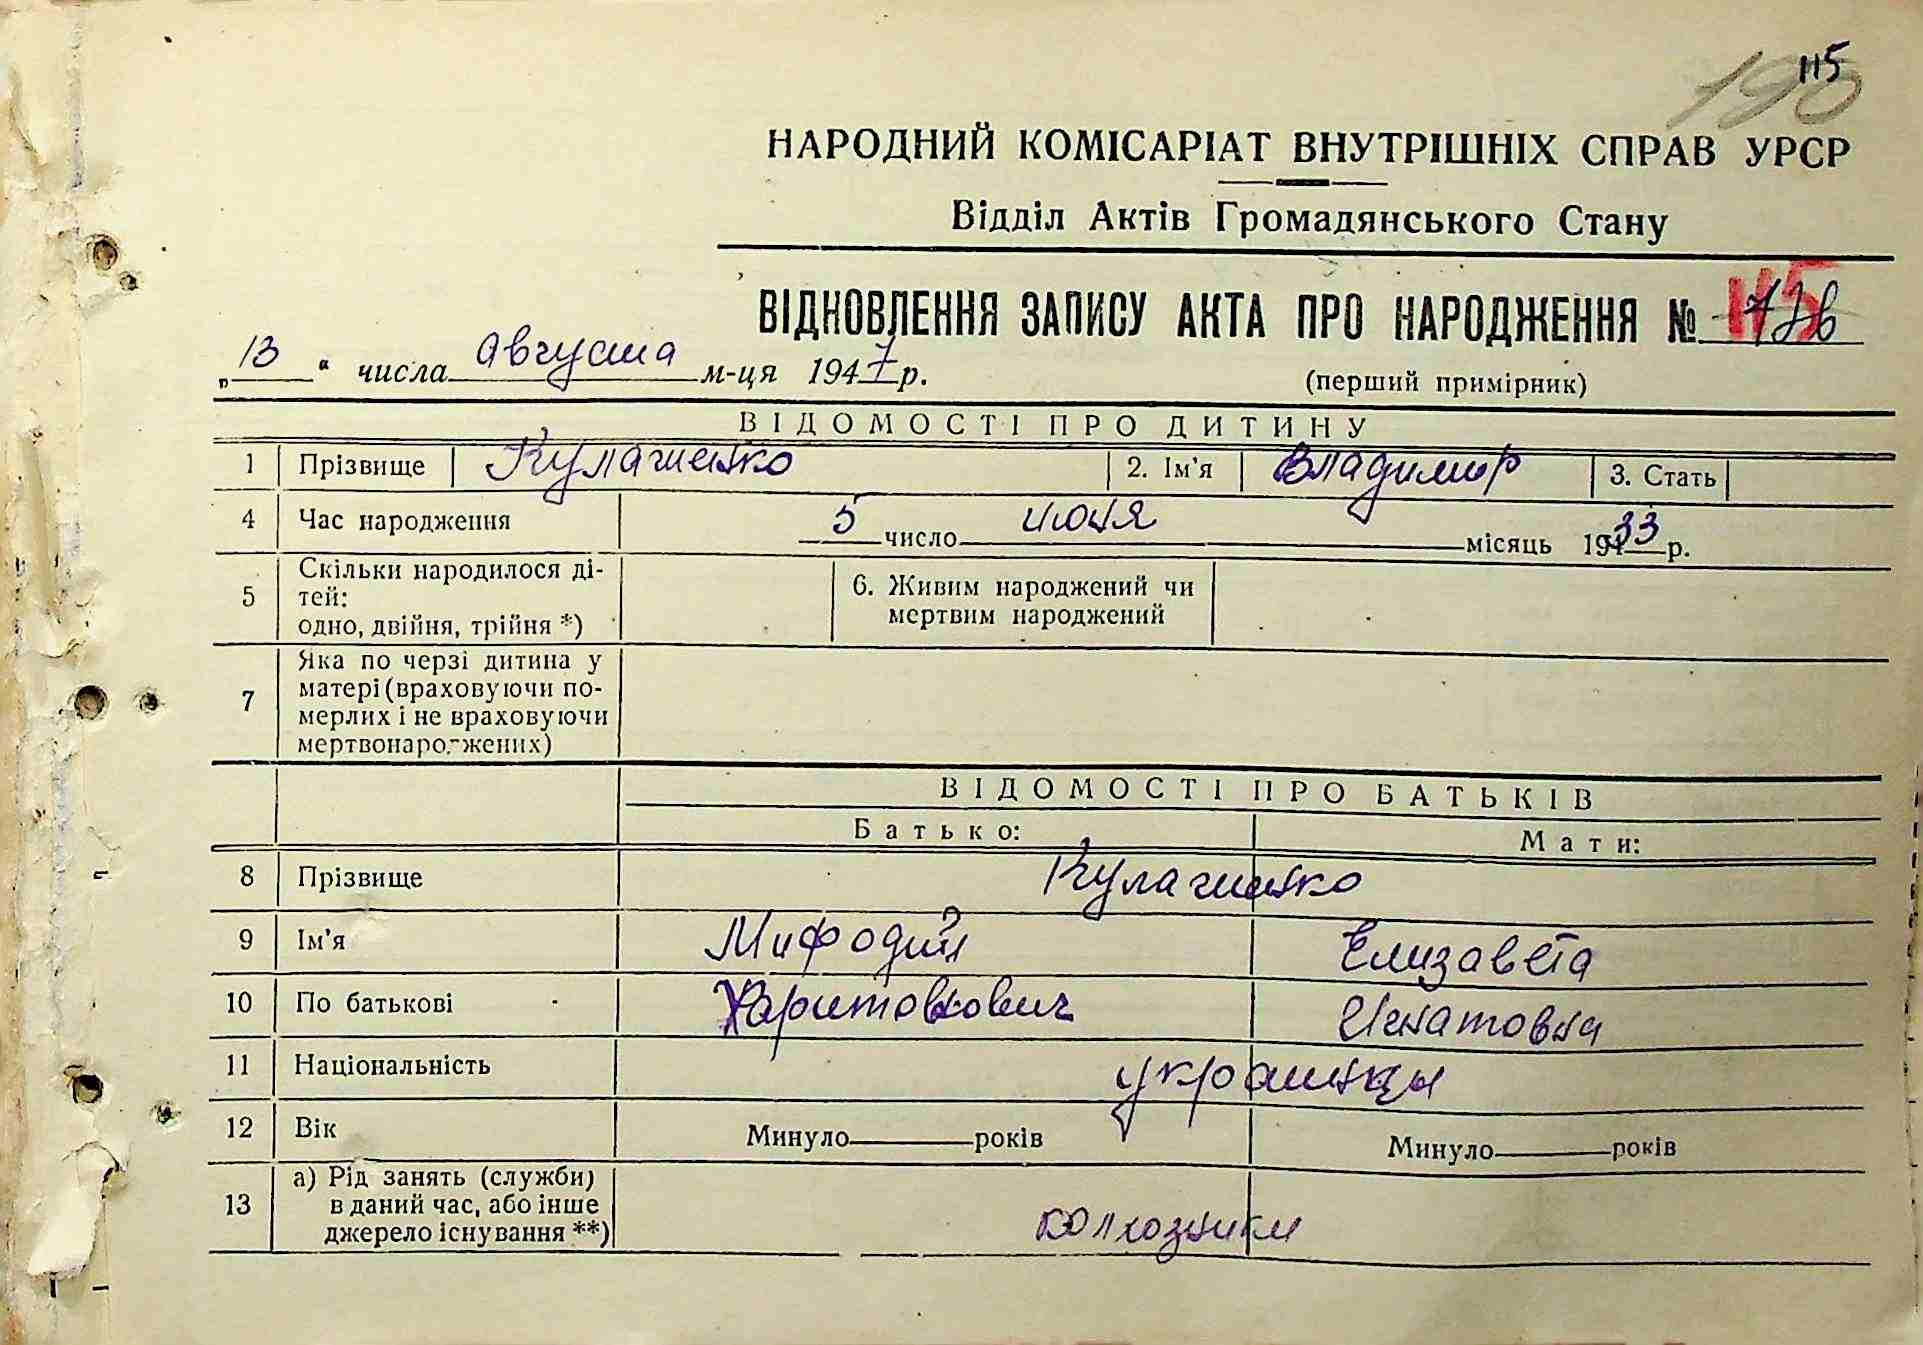 115
190
НАРОДНИЙ КОМІСАРІАТ ВНУТРІШНІХ СПРАВ УРСР
Відділ Актів Громадянського Стану
ВІДНОВЛЕННЯ ЗАПИСУ АКТА ПРО НАРОДЖЕННЯ № 115
„13“ числа августа м-ця 1947 р.
(перший примірник)
ВІДОМОСТІ ПРО ДИТИНУ
1 Прізвище Кулагненко 2. Ім'я Владимир 3. Стать
4 Час народження 5 число июня місяць 1933 р.
5 Скільки народилося ді-
тей:
одно, двійня, трійня *)
6. Живим народжений чи
мертвим народжений
7 Яка по черзі дитина у
матері (враховуючи по-
мерлих і не враховуючи
мертвонароджених)
ВІДОМОСТІ ПРО БАТЬКІВ
Батько: Мати:
8 Прізвище
9 Ім'я Мифодий Елизавета
10 По батькові Харитонович Игнатовна
11 Національність украинцы
12 Вік Минуло років Минуло років
13 а) Рід занять (служби)
в даний час, або інше
джерело існування **)
колхозники